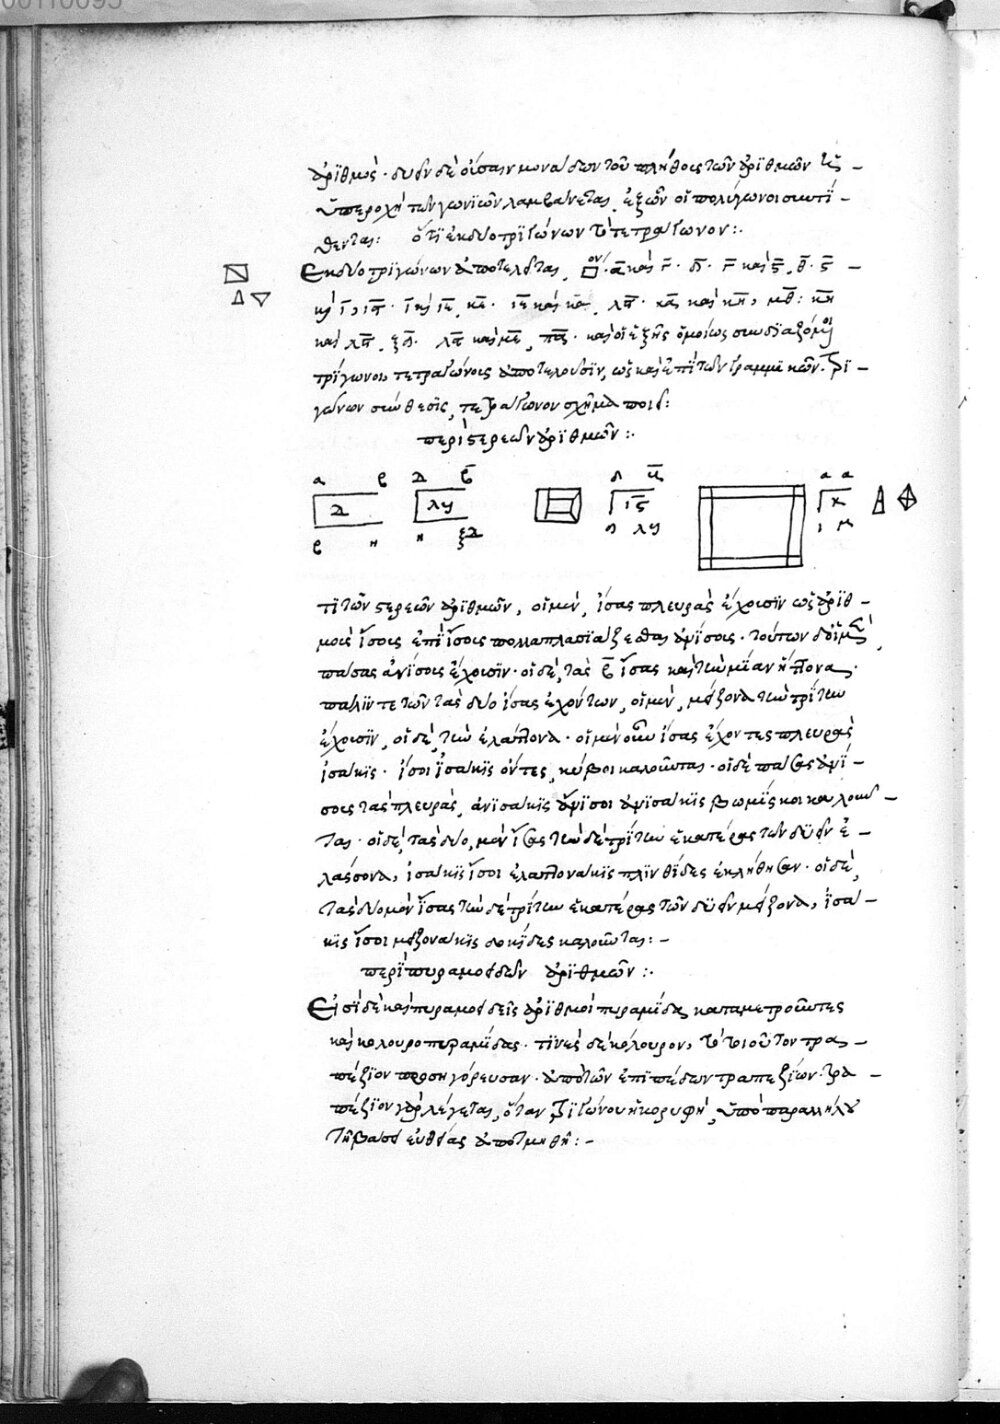 ἀριθμός· δυεῖν δὲ οὐσῶν μονάδων τοῦ πλήθους τῶν ἀριθμῶν ἡ
ὑπεροχὴ τῶν γωνιῶν λαμβάνεται, ἐξ ὧν οἱ πολύγωνοι συντί-
θενται: ὅτι ἐκ δύο τριγώνων τὸ τετράγωνον:.
Ἐκ δύο τριγώνων ἀποτελεῖται □ον· α καὶ γ· δ· γ καὶ ς, θ· ς
καὶ ι, ις· ι καὶ ιε, κε· ιε καὶ κα, λς· κα καὶ κη, μθ: κη
καὶ λς, ξδ· λς καὶ με, πα· καὶ οἱ ἑξῆς ὁμοίως συνδυαζόμενοι
τρίγωνοι, τετραγώνους ἀποτελοῦσιν, ὡς καὶ ἐπὶ τῶν γραμμικῶν τρι-
γώνων σύνθεσις, τετράγωνον σχῆμα ποιεῖ:
περὶ στερεῶν ἀριθμῶν:.
τι τῶν στερεῶν ἀριθμῶν, οἱ μὲν, ἴσας πλευρὰς ἔχουσιν ὡς ἀριθ-
μοὺς ἴσους ἐπὶ ἴσους πολλαπλασιάζεσθαι ἀνίσους· τούτων δ' οἱ μὲν,
πάσας ἀνίσους ἔχουσιν· οἱ δὲ, τὰς β ἴσας καὶ τὴν μίαν ἥττονα·
πάλιν τε τῶν τὰς δύο ἴσας ἐχόντων, οἱ μὲν, μείζονα τὴν τρίτην
ἔχουσιν, οἱ δὲ, τὴν ἐλάττονα· οἱ μὲν οὖν ἴσας ἔχοντες πλευρὰς
ἰσάκις· ἴσοι ἰσάκις ὄντες, κύβοι καλοῦνται· οἱ δὲ πάσας ἀνί-
σους τὰς πλευρὰς, ἀνισάκις ἄνισοι ἀνισάκις βωμίσκοι καλοῦν-
ται· οἱ δὲ, τὰς δύο, μὲν ἴσας τὴν δὲ τρίτην ἑκατέρας τῶν δυεῖν ἐ-
λάσσονα, ἰσάκις ἴσοι ἐλαττονάκις πλινθίδες ἐκλήθησαν· οἱ δὲ,
τὰς δύο μὲν ἴσας τὴν δὲ τρίτην ἑκατέρας τῶν δυεῖν μείζονα, ἰσά-
κις ἴσοι μειζονάκις δοκίδες καλοῦνται:-
περὶ πυραμοειδῶν ἀριθμῶν:.
Εἰσὶ δὲ καὶ πυραμοειδεῖς ἀριθμοὶ πυραμίδας καταμετροῦντες
καὶ κολουροπυραμίδας· τινὲς δὲ κόλουρον, τὸ τοιοῦτον τρα-
πέζιον προσηγόρευσαν· ἀπὸ τῶν ἐπιπέδων τραπεζίων· τρα-
πέζιον γὰρ λέγεται, ὅταν τριγώνου ἡ κορυφὴ, ὑπὸ παραλλήλου
τῇ βάσει εὐθείας ἀποτμηθῇ:-